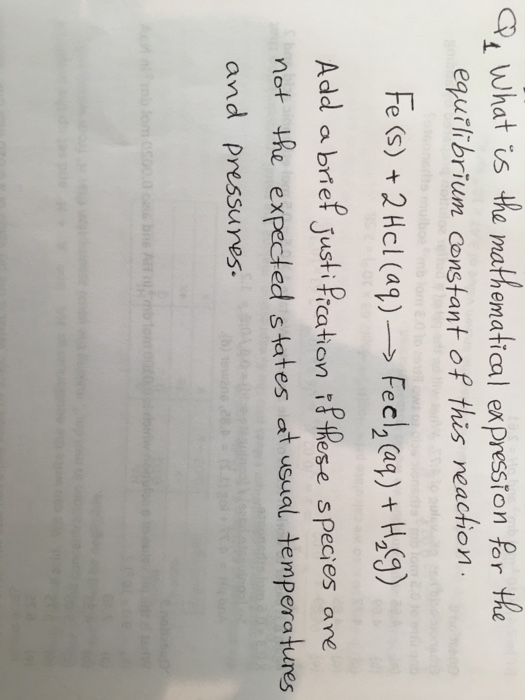 Q1 What is the mathematical expression for the
equilibrium constant of this reaction.
Fe(s) + 2HCl(aq) → FeCl₂(aq) + H₂(g)
Add a brief justification if these species are
not the expected states at usual temperatures
and pressures.